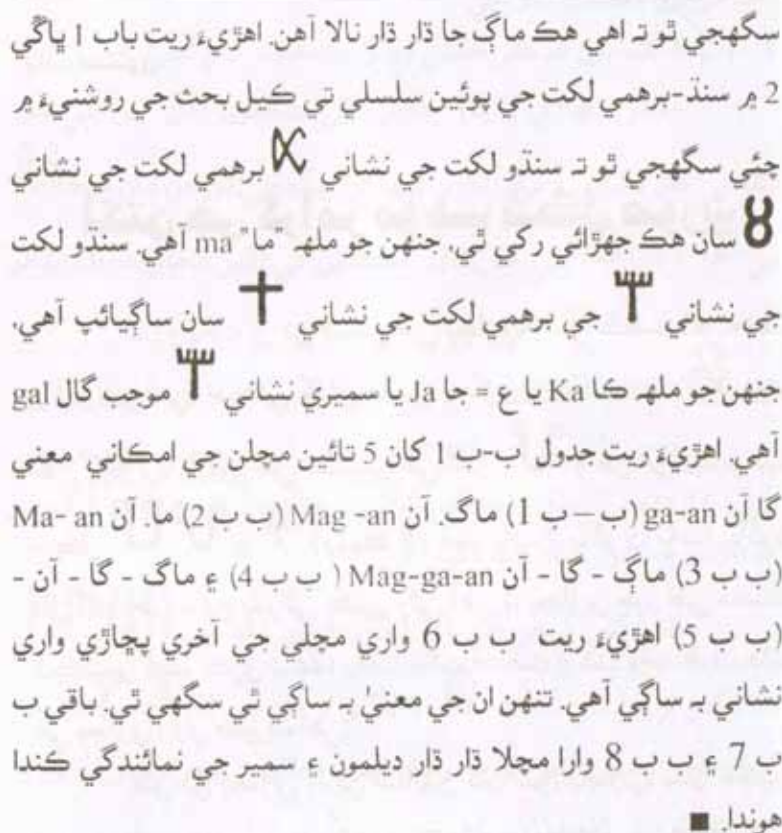 سگهجي ٿو تہ اهي هڪ ماڳ جا ڌار ڌار نالا آهن. اهڙيءَ ريت باب 1 ڀاڱي
2 ۾ سنڌ-برهمي لکت جي پوئين سلسلي تي ڪيل بحث جي روشنيءَ ۾
چئي سگهجي ٿو تہ سنڌو لکت جي نشاني برهمي لکت جي نشاني
سان هڪ جهڙائي رکي ٿي، جنهن جو ملهہ ”ما“ ma آهي. سنڌو لکت
جي نشاني جي برهمي لکت جي نشاني سان ساڳيائپ آهي،
جنهن جو ملهہ ڪا Ka يا ع = جا Ja يا سميري نشاني موجب گال gal
آهي. اهڙيءَ ريت جدول ب-ب 1 کان 5 تائين مچلن جي امڪاني معني
گا آن ga-an (ب – ب 1) ماگ. آن Mag -an (ب ب 2) ما. آن Ma- an
(ب ب 3) ماڳ - گا - آن Mag-ga-an ( ب ب 4) ۽ ماگ - گا - آن -
(ب ب 5) اهڙيءَ ريت ب ب 6 واري مچلي جي آخري پڇاڙي واري
نشاني بہ ساڳي آهي. تنهن ان جي معنيٰ بہ ساڳي ٿي سگهي ٿي. باقي ب
ب 7 ۽ ب ب 8 وارا مچلا ڌار ڌار ديلمون ۽ سمير جي نمائندگي ڪندا
هوندا. ■